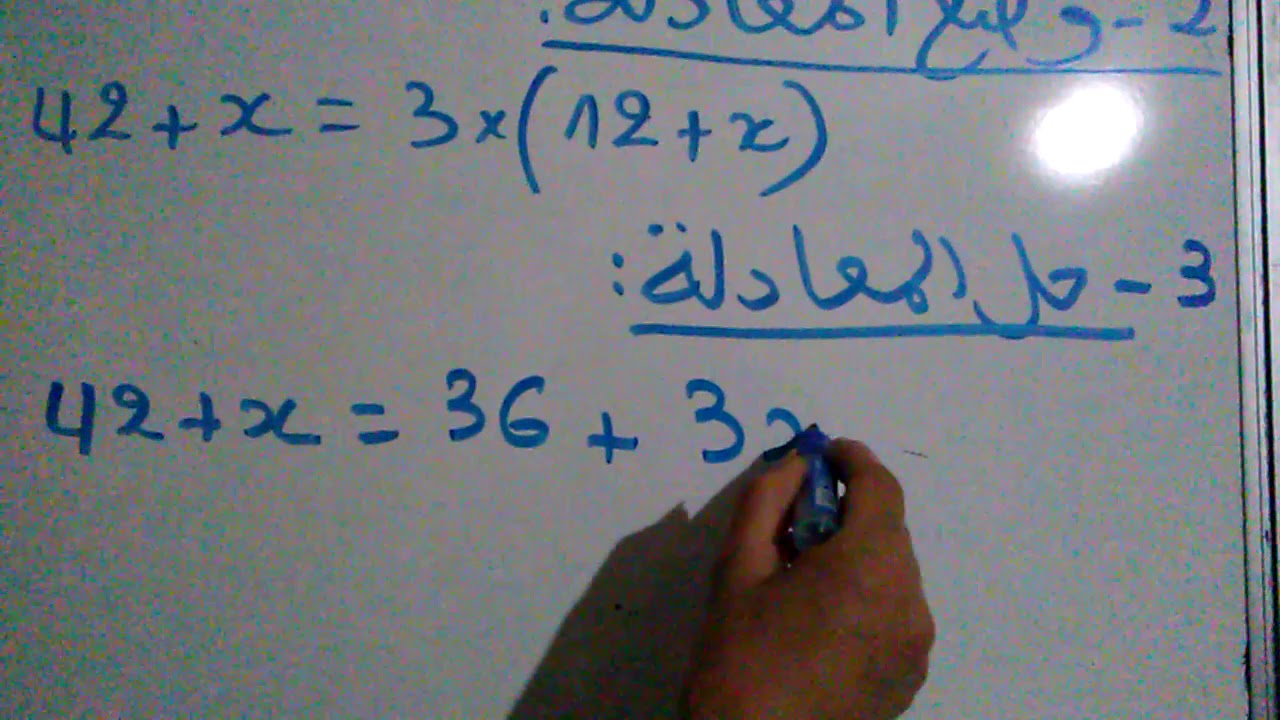 2 - وضع المعادلة:
42 + x = 3 × (12 + x)
3 - حل المعادلة:
42 + x = 36 + 3x